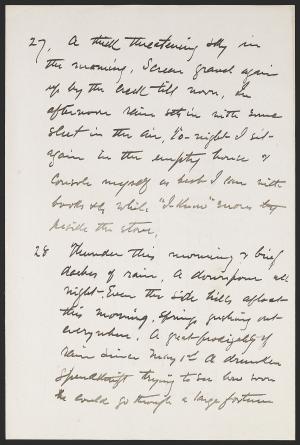 27, A thick threatening sky in
the morning. Screen gravel again
up by the creek till noon. In
afternoon rain sets in with some
sleet in the air. To-night I sit
again in the empty house &
console myself as best I can with
books &c while "I-Know" snores
beside the stove.
28 Thunder this morning & brief
dashes of rain. A downpour all
night. Even the side hills afloat
this morning. Springs gushing out
everywhere. A great prodigality of
rain since May 1st A drunken
spendthrift trying to see how soon
he could go through a large fortune